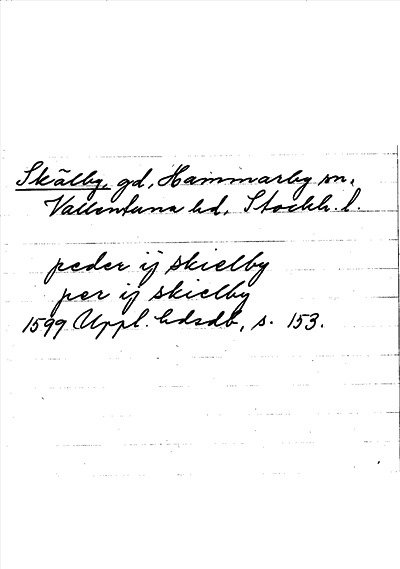 Skälby, gd, Hammarby sn,
Vallentuna hd, Stockh. l.
peder ij skielby
per ij skielby
1599 Uppl. hdsdb, s. 153.